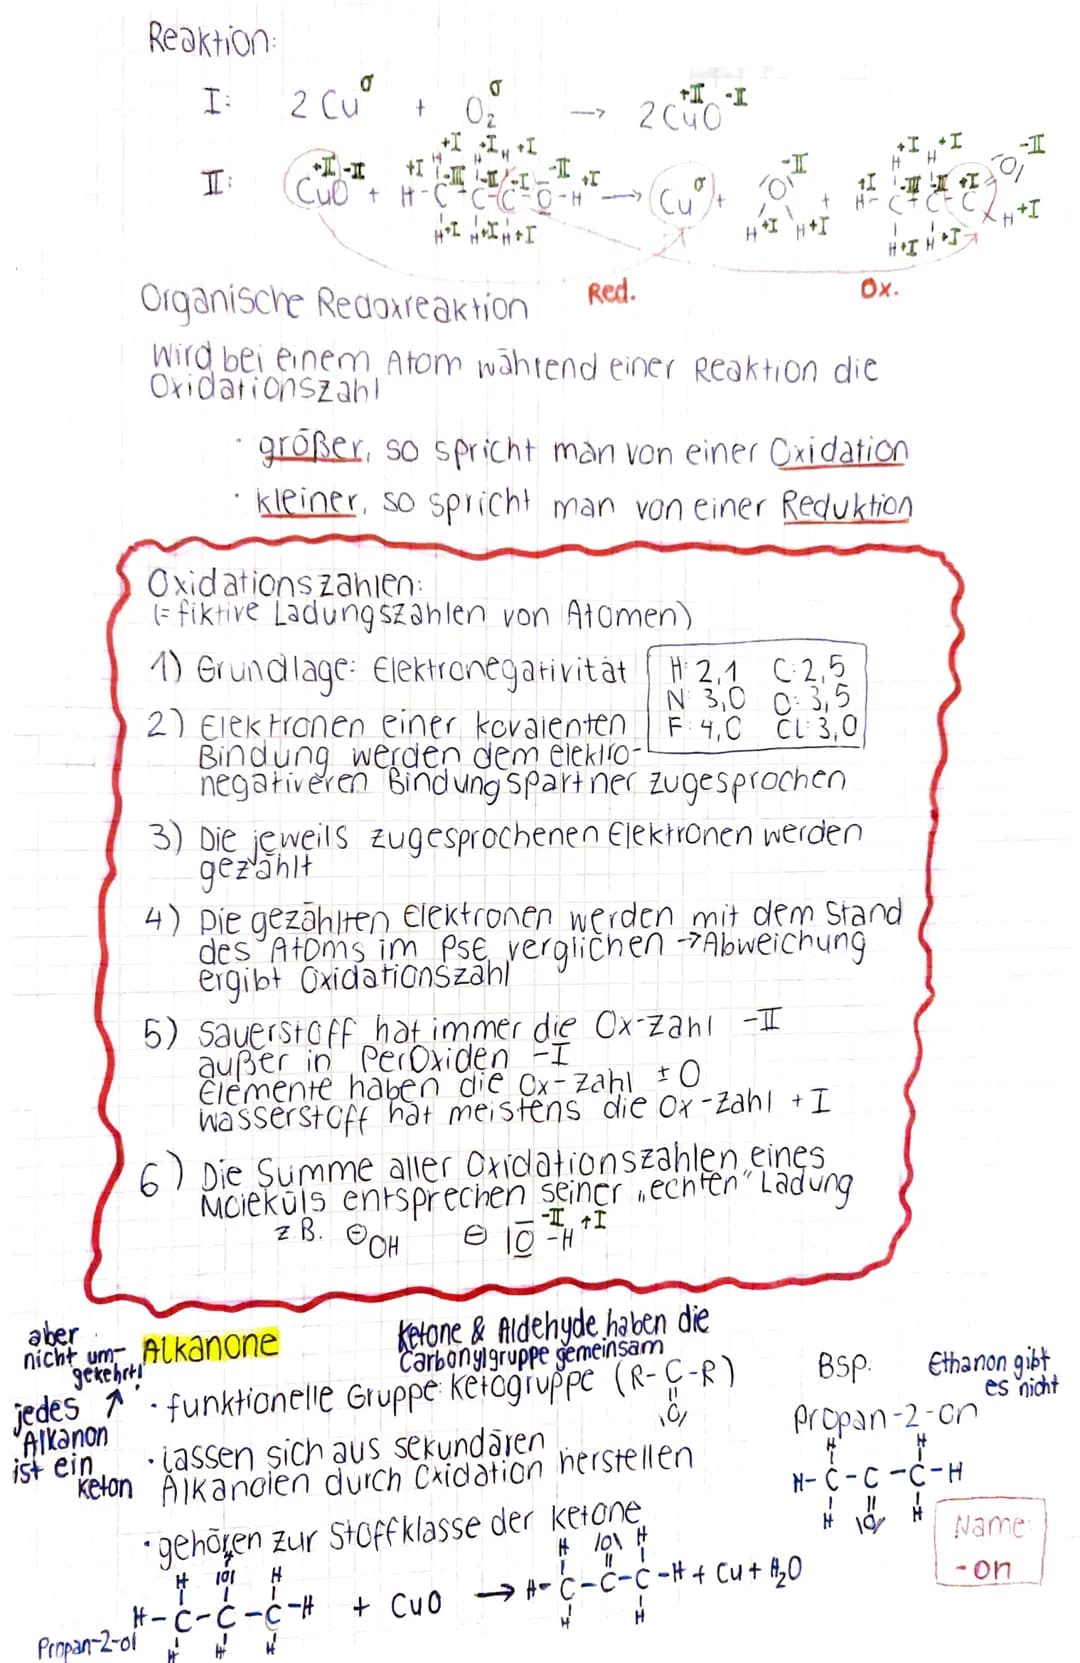 Reaktion:
I: 2 Cu + O₂ → 2 CuO
II: CuO + H-C-C-C-O-H → Cu + O + H-C-C-C
Red. Ox.
Organische Redoxreaktion
Wird bei einem Atom während einer Reaktion die
Oxidationszahl
· größer, so spricht man von einer Oxidation
· kleiner, so spricht man von einer Reduktion
Oxidationszahlen:
(= fiktive Ladungszahlen von Atomen)
1) Grundlage: Elektronegativität
H: 2,1 C: 2,5
N: 3,0 O: 3,5
F: 4,0 Cl: 3,0
2) Elektronen einer kovalenten
Bindung werden dem elektro-
negativeren Bindungspartner zugesprochen
3) Die jeweils zugesprochenen Elektronen werden
gezählt
4) Die gezählten Elektronen werden mit dem Stand
des Atoms im PSE verglichen → Abweichung
ergibt Oxidationszahl
5) Sauerstoff hat immer die Ox-Zahl -II
außer in Peroxiden -I
Elemente haben die Ox-Zahl ±0
Wasserstoff hat meistens die Ox-Zahl +I
6) Die Summe aller Oxidationszahlen eines
Moleküls entsprechen seiner „echten" Ladung
z.B. ⊖OH ⊖ |O-H -II +I
aber
nicht um-
gekehrt!
jedes
Alkanon
ist ein
Keton
Alkanone
Ketone & Aldehyde haben die
Carbonylgruppe gemeinsam
· funktionelle Gruppe: Ketogruppe (R-C-R)
|O|
· lassen sich aus sekundären
Alkanolen durch Oxidation herstellen
· gehören zur Stoffklasse der Ketone
Bsp. Ethanon gibt
es nicht
Propan-2-on
H H
H-C-C-C-H
H |O| H
Name:
-on
H |O| H
H-C-C-C-H + CuO → H-C-C-C-H + Cu + H₂O
H H H
Propan-2-ol